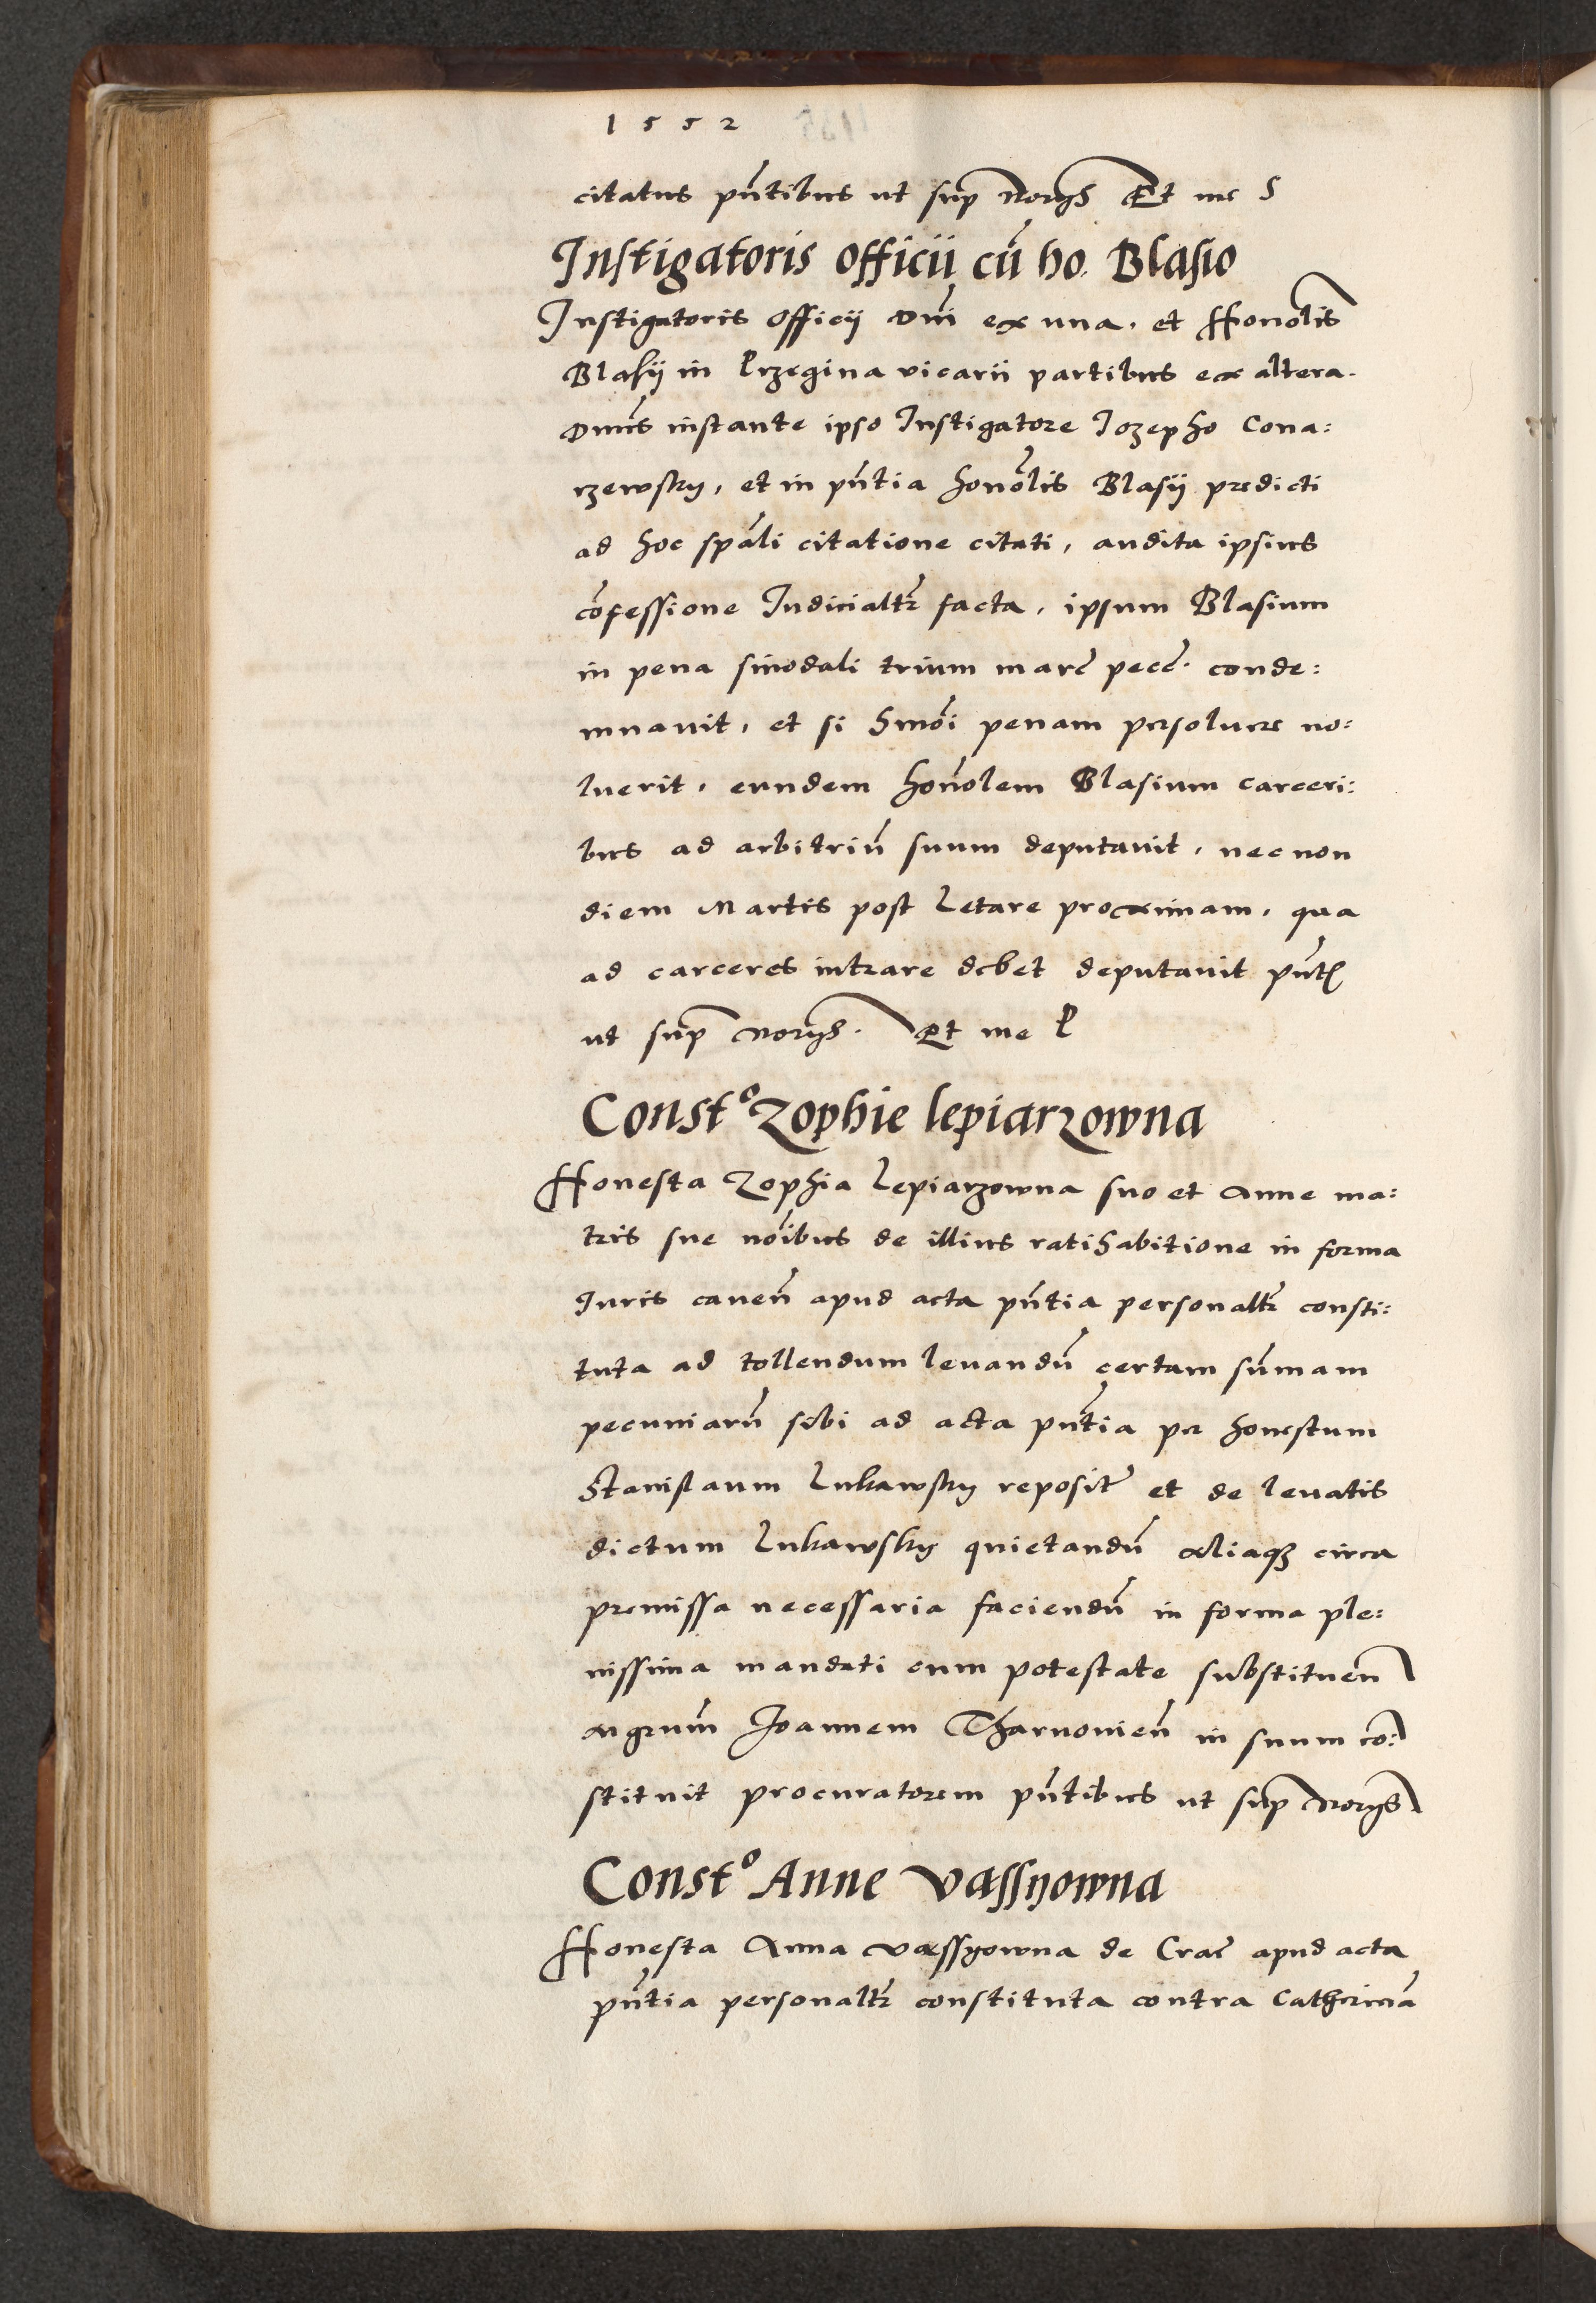 1552
citatus pñtibus ut sup Norÿs Et me S
Instigatoris officii cū ho. Blasio
Instigatoris officij Dñi ex una. et Honolis
Blasij in Przegina vicarii partibus ex altera.
Dnus instante ipso Instigatore Iozepho Cona:
rzewsky, et in pñtia honolis Blasij predicti
ad hoc spāli citatione citati, audita ipsius
cōfessione Iudicialtr facta, ipsum Blasium
in pena sinodali trium marc pecc. conde:
mnauit, et si Smoi penam persoluere no:
luerit, eundem honolem Blasium carceri:
bus ad arbitriū suum deputauit, necnon
diem Martis post Letare proximam, qua
ad carceres intrare debet deputauit pñt
ut sup Norÿs. Et me P
Const° Zophie lepiarzowna
Honesta Zophia Lepiarzowna suo et Anne ma:
tris sue noibus de illius ratihabitione in forma
Iuris caueñ apud acta pñtia personaltr consti:
tuta ad tollendum leuandū certam sūmam
pecuniarū sibi ad acta pñtia per honestum
Stanislaum Lukawsky reposit et de leuatis
dictum Lukawsky quietandū aliaqȝ circa
premissa necessaria faciendū in forma ple:
nissima mandati cum potestate substitueñ
Mgrum Joannem Tharnouieñ in suum co:
stituit procuratorem pñtibus ut sup Norÿs
Const° Anne Vassyowna
Honesta Anna Vassyowna de Crac apud acta
pñtia personaltr constituta contra Catherinā